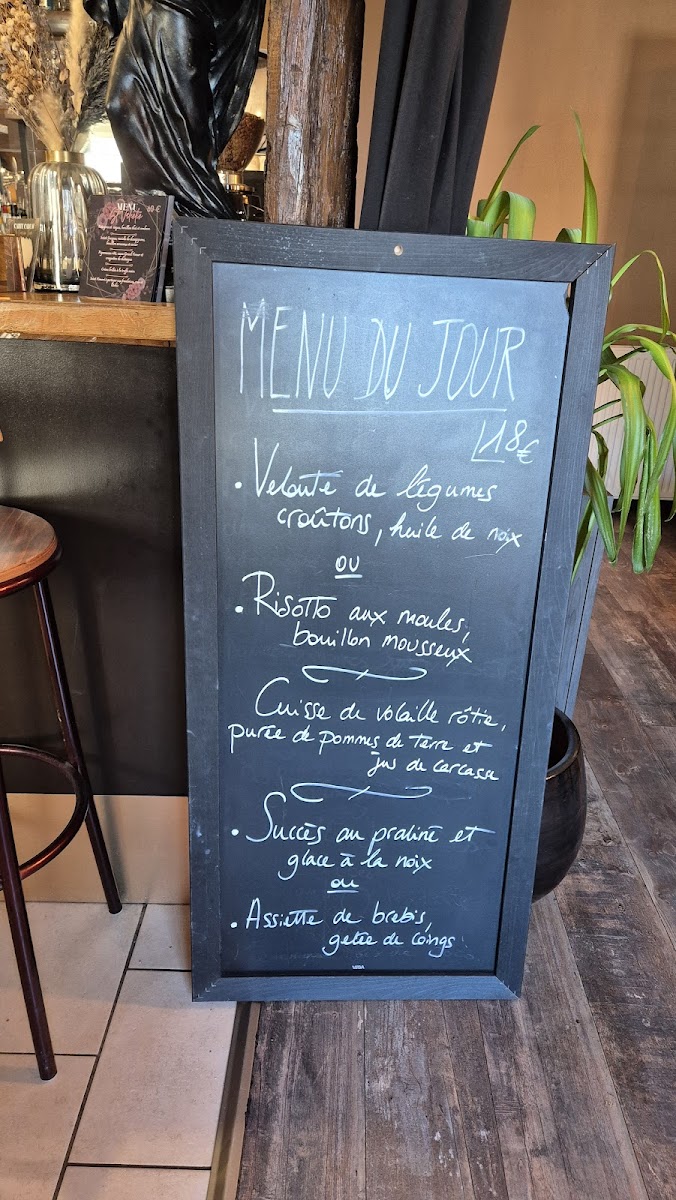 MENU
MENU DU JOUR
18€
• Velouté de légumes
croûtons, huile de noix
ou
• Risotto aux moules,
bouillon mousseux
Cuisse de volaille rôtie,
purée de pommes de terre et
jus de carcasse
• Succès au praliné et
glace à la noix
ou
• Assiette de brebis,
gelée de coings